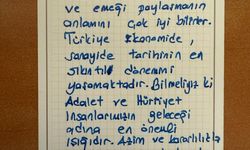 ve emeği paylaşmanın
anlamını çok iyi bilirler.
Türkiye ekonomide,
sanayide tarihinin en
sıkıntılı dönemini
yaşamaktadır. Bilmeliyiz ki
Adalet ve Hürriyet
insanlarımızın geleceği
adına en önemli
ışığıdır. Azim ve kararlılıkla